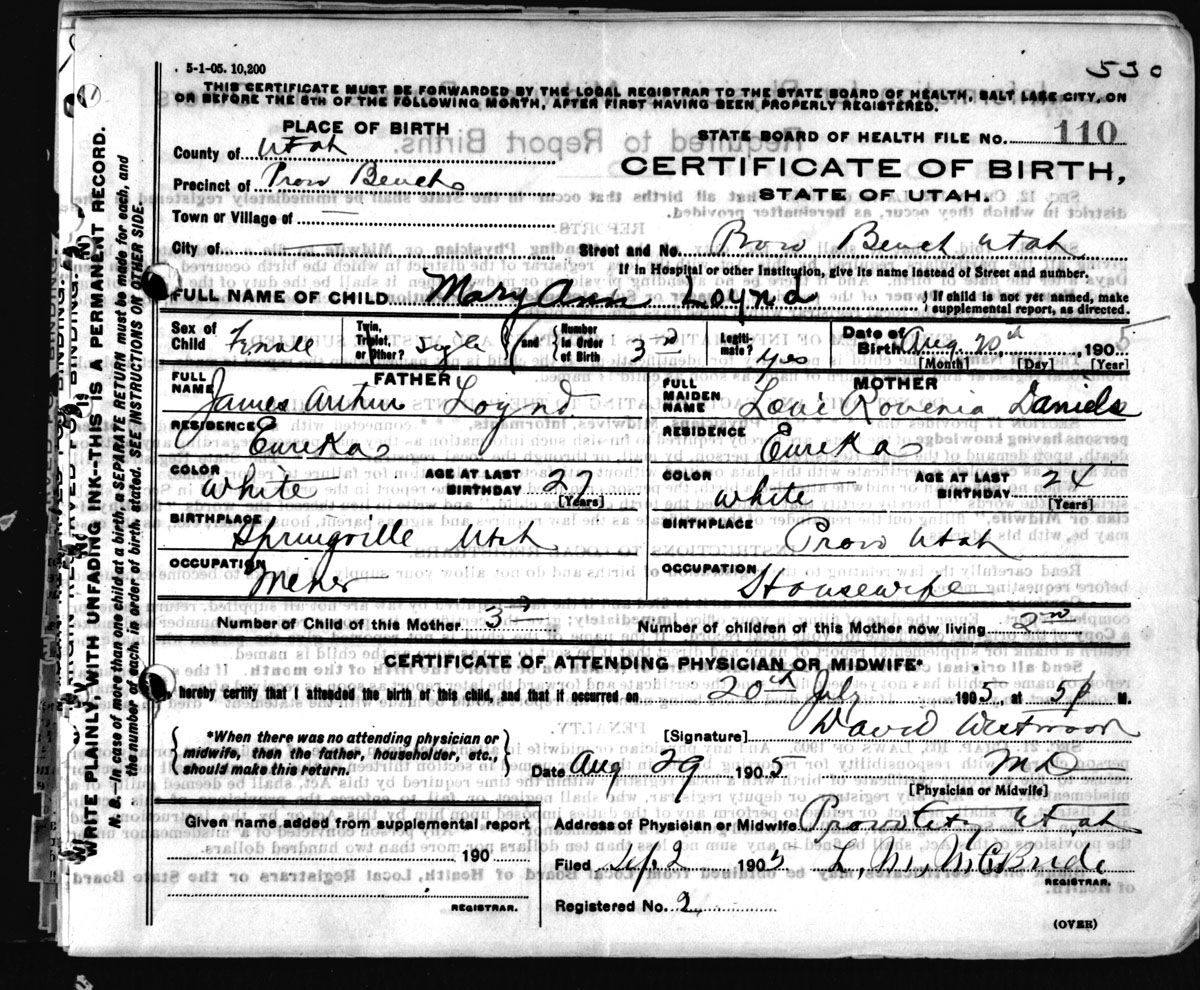 5-1-05. 10,200
530
THIS CERTIFICATE MUST BE FORWARDED BY THE LOCAL REGISTRAR TO THE STATE BOARD OF HEALTH, SALT LAKE CITY, ON
OR BEFORE THE 5TH OF THE FOLLOWING MONTH, AFTER FIRST HAVING BEEN PROPERLY REGISTERED.
PLACE OF BIRTH
STATE BOARD OF HEALTH FILE NO. 110
County of Utah
CERTIFICATE OF BIRTH,
Precinct of Provo Bench
STATE OF UTAH.
Town or Village of —
City of —
Street and No. Provo Bench Utah
If in Hospital or other Institution, give its name instead of Street and number.
FULL NAME OF CHILD Mary Ann Loynd
} If child is not yet named, make supplemental report, as directed.
Sex of Child Female
Twin, Triplet, or Other?
and { Number in Order of Birth 3rd
Legitimate? Yes
Date of Birth Aug 20th, 1905
[Month] [Day] [Year]
FATHER
FULL NAME James Arthur Loynd
RESIDENCE Eureka
COLOR White
AGE AT LAST BIRTHDAY 27
[Years]
BIRTHPLACE Springville Utah
OCCUPATION Miner
MOTHER
FULL MAIDEN NAME Rovenia Daniels
RESIDENCE Eureka
COLOR White
AGE AT LAST BIRTHDAY 24
[Years]
BIRTHPLACE Provo Utah
OCCUPATION Housewife
Number of Child of this Mother 3rd
Number of children of this Mother now living
CERTIFICATE OF ATTENDING PHYSICIAN OR MIDWIFE*
I, hereby certify that I attended the birth of this child, and that it occurred on 20th July 1905, at 5 P M.
{ *When there was no attending physician or midwife, then the father, householder, etc., should make this return. }
[Signature] David Westwood
Date Aug 29 1905
MD
[Physician or Midwife]
Given name added from supplemental report
190
REGISTRAR.
Address of Physician or Midwife Provo City Utah
Filed Sep 2 1905 L. M. McBride
REGISTRAR.
Registered No. 2
(OVER)
WRITE PLAINLY, WITH UNFADING INK--THIS IS A PERMANENT RECORD.
N. B.—In case of more than one child at a birth, a SEPARATE RETURN must be made for each, and
the number of each, in order of birth, stated. SEE INSTRUCTIONS ON OTHER SIDE.